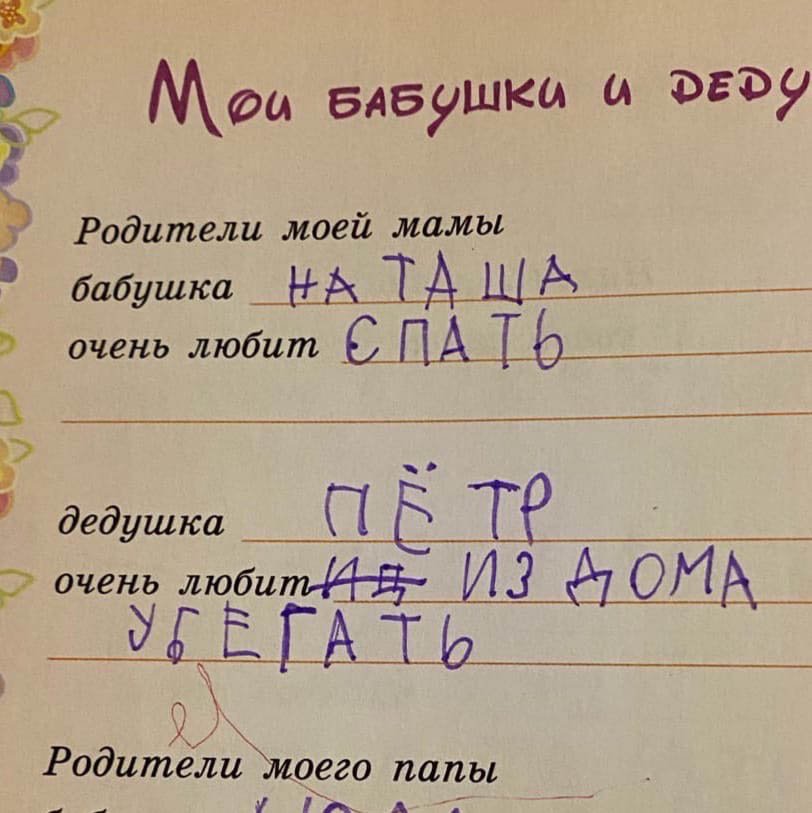 Мои бабушки и деду
Родители моей мамы
бабушка НАТАША
очень любит СПАТЬ
дедушка ПЁТР
очень любит ИЗ ДОМА
УБЕГАТЬ
Родители моего папы